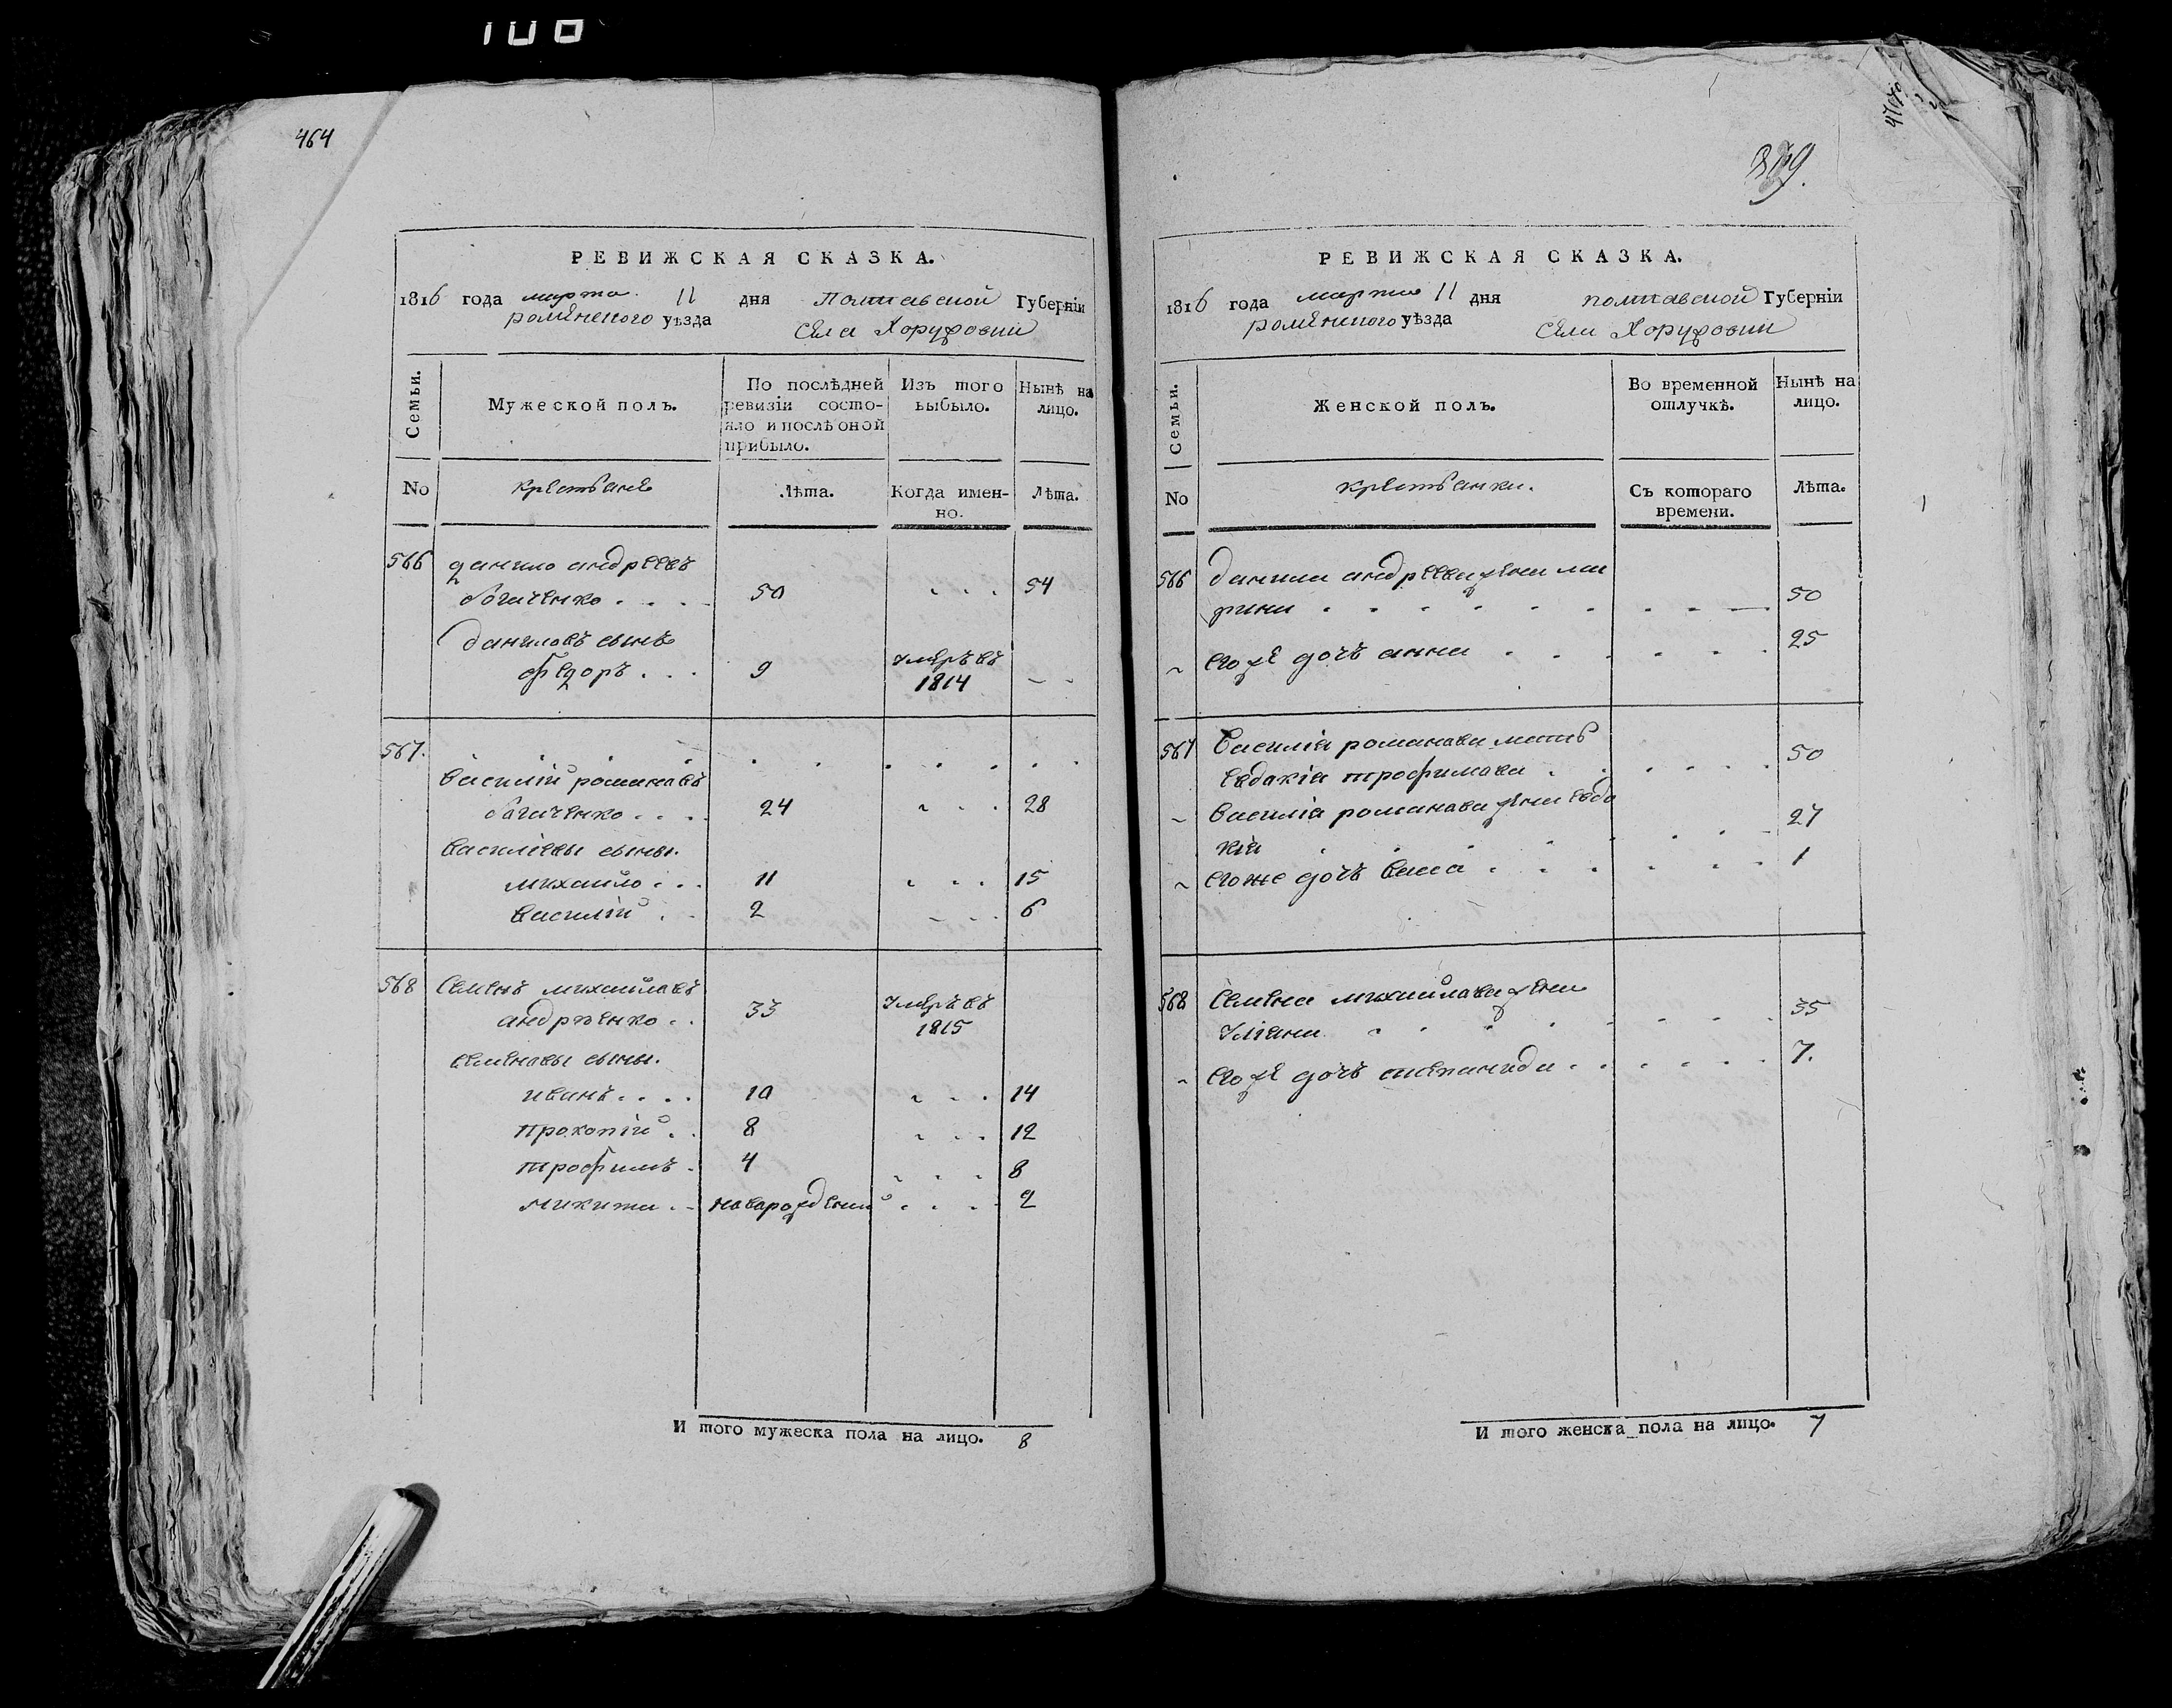 108
464
РЕВИЖСКАЯ СКАЗКА.
1816 года марта 11 дня Полтавской Губерніи
роменского уѣзда Села Хоружовки
Семьи.
Мужеской полъ.
По послѣдней ревизіи состояло и послѣ оной прибыло.
Изъ того выбыло.
Нынѣ на лицо.
No
крестьяне
Лѣта.
Когда именно.
Лѣта.
566 данило андреевъ
50 . . . 54
даниловъ сынъ
федоръ . . . 9 умеръ въ 1814 - -
567.
василій романавъ
24 . . . 28
василіевы сыны.
михайло . . . 11 . . . 15
василій . . 2 . . . 6
568 семенъ михайлавъ
андрѣенко . . 33 умеръ въ 1815
семенавы сыны.
иванъ . . . . 10 . . . 14
прокопій . . 8 . . . 12
трофимъ . 4 . . . 8
микита . . наварожденый . . . . 2
И того мужеска пола на лицо. 8
РЕВИЖСКАЯ СКАЗКА.
1816 года марта 11 дня полтавской Губерніи
роменского уѣзда Села Хоружовки
Семьи.
Женской полъ.
Во временной отлучкѣ.
Нынѣ на лицо.
No
крестьянки.
Съ котораго времени.
Лѣта.
566 данила андреева жена ма
рина . . . . . . . . . . 50
его же дочъ анна . . . . . . 25
567 василія романава мать
евдакія трофимава . . . . . . 50
василія романава жена евда
кія . . . . . . . . 27
егоже дочъ васса . . . . . . 1
568 семена михайлава жена
уліяна . . . . . . . . 35
его же дочъ степанида . . . . . . 7.
И того женска пола на лицо. 7